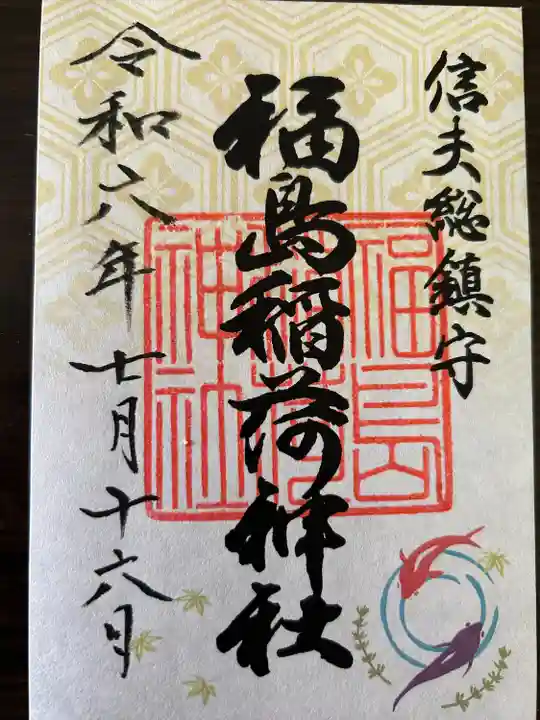 信夫総鎮守
福島稲荷神社
福島稲荷神社
令和六年七月十六日